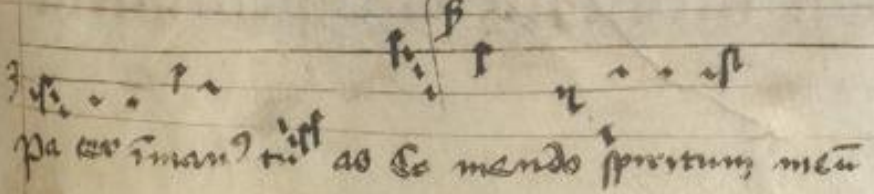 Pa ter ī manꝰ tu as Co mendo spiritum meū